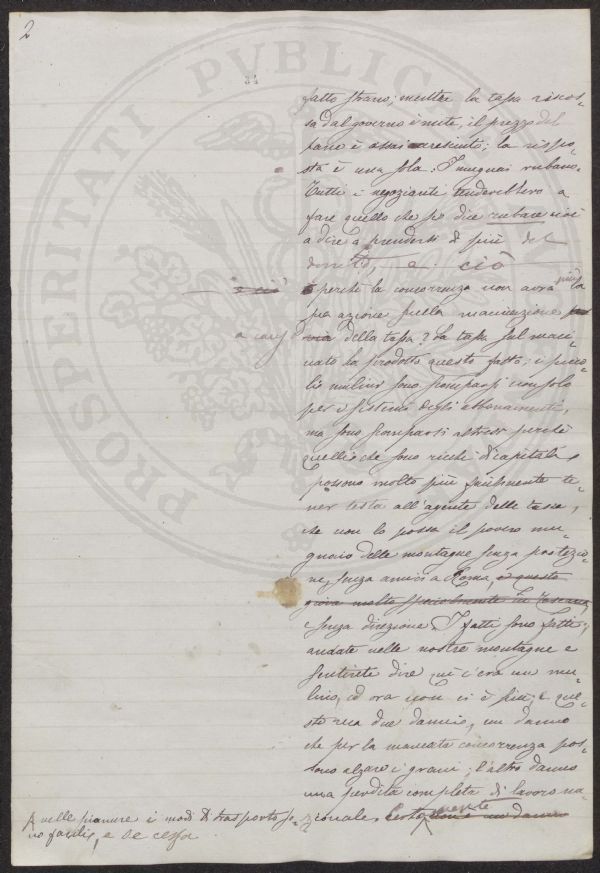 2
34
fatto strano; mentre la tassa riscos-
sa dal governo è mite, il prezzo del
pane è assai cresciuto; la rispo-
sta è una sola: I mugnai rubano.
Tutti i negozianti tenderebbero a
fare quello che si dice rubare cioè
a dire a prendersi di più del
dovuto, e ciò
è perché la concorrenza non avrà più la
sua azione sulla macinazione
a causa della tassa? La tassa sul maci-
nato ha prodotto questo fatto; i picco-
li mulini sono scomparsi non solo
per i sistemi degli abbonamenti,
ma sono scomparsi altresì perché
quelli che sono ricchi di capitale
possono molto più facilmente te-
ner testa all'agente delle tasse,
che non lo possa il povero mu-
gnaio delle montagne senza protezio-
ne, senza amici a Roma, e questo
giova molto specialmente in
e senza direzione. I fatti sono fatti;
andate nelle nostre montagne e
sentirete dire qui c'era un mu-
lino, ed ora non ci è più; e que-
sto reca due danni, un danno
che per la mancata concorrenza pos-
sono alzare i grani; l'altro danno
una perdita completa di lavoro na-
zionale. Certamente un danno
nelle pianure i modi di trasporto so-
no facili, e se cessa
PROSPERITATI PUBLICAE